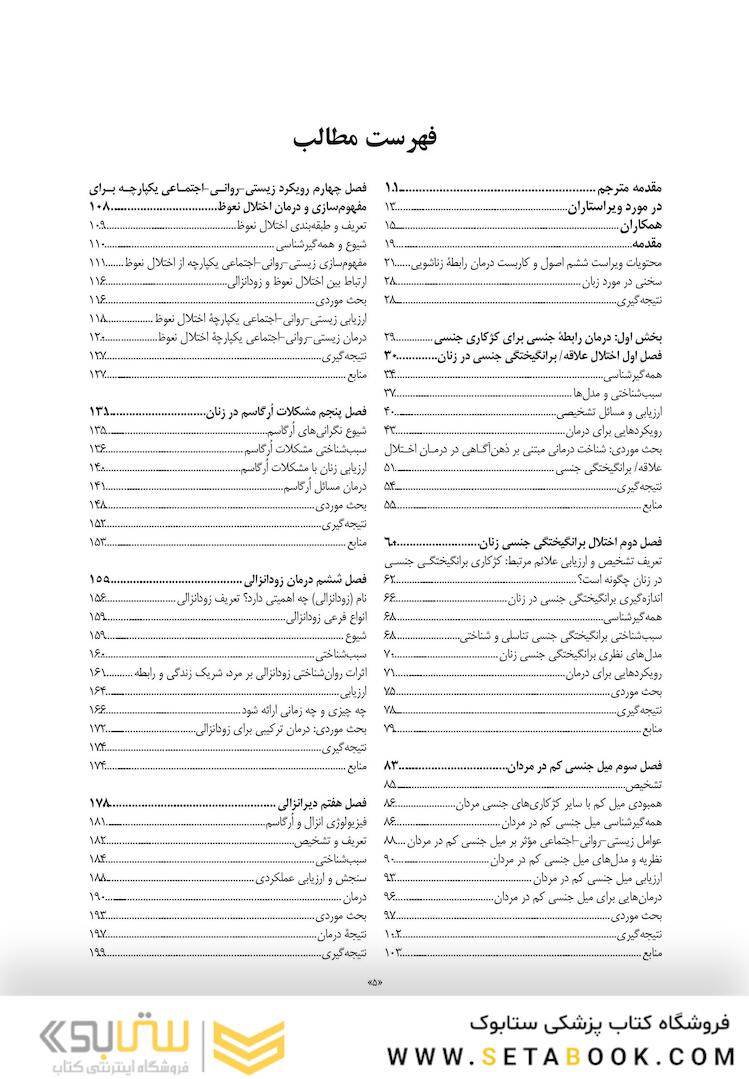 فهرست مطالب
مقدمه مترجم ........ ۱۱
در مورد ویراستاران ........ ۱۳
همکاران ........ ۱۵
مقدمه ........ ۱۹
محتویات ویراست ششم اصول و کاربست درمان رابطهٔ زناشویی ........ ۲۱
سخنی در مورد زبان ........ ۲۸
نتیجه‌گیری ........ ۲۸
بخش اول: درمان رابطهٔ جنسی برای کژکاری جنسی ........ ۲۹
فصل اول اختلال علاقه/ برانگیختگی جنسی در زنان ........ ۳۰
همه‌گیرشناسی ........ ۳۴
سبب‌شناختی و مدل‌ها ........ ۳۷
ارزیابی و مسائل تشخیصی ........ ۴۰
رویکردهایی برای درمان ........ ۴۳
بحث موردی: شناخت درمانی مبتنی بر ذهن‌آگاهی در درمـان اخـتلال
علاقه/ برانگیختگی جنسی ........ ۵۱
نتیجه‌گیری ........ ۵۴
منابع ........ ۵۵
فصل دوم اختلال برانگیختگی جنسی زنان ........ ۶۰
تعریف تشخیص و ارزیابی علائم مرتبط: کژکاری برانگیختگـی جنسـی
در زنان چگونه است؟ ........ ۶۲
اندازه‌گیری برانگیختگی جنسی در زنان ........ ۶۶
همه‌گیرشناسی ........ ۶۸
سبب‌شناختی برانگیختگی جنسی تناسلی و شناختی ........ ۶۸
مدل‌های نظری برانگیختگی جنسی زنان ........ ۷۰
رویکردهایی برای درمان ........ ۷۱
بحث موردی ........ ۷۵
نتیجه‌گیری ........ ۷۸
منابع ........ ۷۹
فصل سوم میل جنسی کم در مردان ........ ۸۳
تشخیص ........ ۸۵
همبودی میل کم با سایر کژکاری‌های جنسی مردان ........ ۸۶
همه‌گیرشناسی میل جنسی کم در مردان ........ ۸۶
عوامل زیستی-روانی-اجتماعی مؤثر بر میل جنسی کم در مردان ........ ۸۸
نظریه و مدل‌های میل جنسی کم در مردان ........ ۹۰
ارزیابی میل جنسی کم در مردان ........ ۹۳
درمان‌هایی برای میل جنسی کم در مردان ........ ۹۶
بحث موردی ........ ۹۷
نتیجه‌گیری ........ ۱۰۲
منابع ........ ۱۰۳
فصل چهارم رویکرد زیستی-روانـی-اجتمـاعی یکپارچـه بـرای
مفهوم‌سازی و درمان اختلال نعوظ ........ ۱۰۸
تعریف و طبقه‌بندی اختلال نعوظ ........ ۱۰۹
شیوع و همه‌گیرشناسی ........ ۱۱۰
مفهوم‌سازی زیستی-روانی-اجتماعی یکپارچه از اختلال نعوظ ........ ۱۱۱
ارتباط بین اختلال نعوظ و زودانزالی ........ ۱۱۶
بحث موردی ........ ۱۱۶
ارزیابی زیستی-روانی-اجتماعی یکپارچهٔ اختلال نعوظ ........ ۱۱۸
درمان زیستی-روانی-اجتماعی یکپارچهٔ اختلال نعوظ ........ ۱۲۰
نتیجه‌گیری ........ ۱۲۷
منابع ........ ۱۲۷
فصل پنجم مشکلات اُرگاسم در زنان ........ ۱۳۱
شیوع نگرانی‌های اُرگاسم ........ ۱۳۵
سبب‌شناختی مشکلات اُرگاسم ........ ۱۳۶
ارزیابی زنان با مشکلات اُرگاسم ........ ۱۴۰
درمان مسائل اُرگاسم ........ ۱۴۱
بحث موردی ........ ۱۴۸
نتیجه‌گیری ........ ۱۵۲
منابع ........ ۱۵۳
فصل ششم درمان زودانزالی ........ ۱۵۵
نام (زودانزالی) چه اهمیتی دارد؟ تعریف زودانزالی ........ ۱۵۶
انواع فرعی زودانزالی ........ ۱۵۹
شیوع ........ ۱۵۹
سبب‌شناختی ........ ۱۶۰
اثرات روان‌شناختی زودانزالی بر مرد، شریک زندگی و رابطه ........ ۱۶۱
ارزیابی ........ ۱۶۴
چه چیزی و چه زمانی ارائه شود ........ ۱۶۶
بحث موردی: درمان ترکیبی برای زودانزالی ........ ۱۷۲
نتیجه‌گیری ........ ۱۷۴
منابع ........ ۱۷۴
فصل هفتم دیرانزالی ........ ۱۷۸
فیزیولوژی انزال و اُرگاسم ........ ۱۸۱
تعریف و تشخیص ........ ۱۸۲
سبب‌شناختی ........ ۱۸۴
سنجش و ارزیابی عملکردی ........ ۱۸۸
درمان ........ ۱۹۰
بحث موردی ........ ۱۹۳
نتیجهٔ درمان ........ ۱۹۷
نتیجه‌گیری ........ ۱۹۹
«۵»
فروشگاه کتاب پزشکی ستابوک
WWW.SETABOOK.COM
ستابوک
فروشگاه اینترنتی کتاب